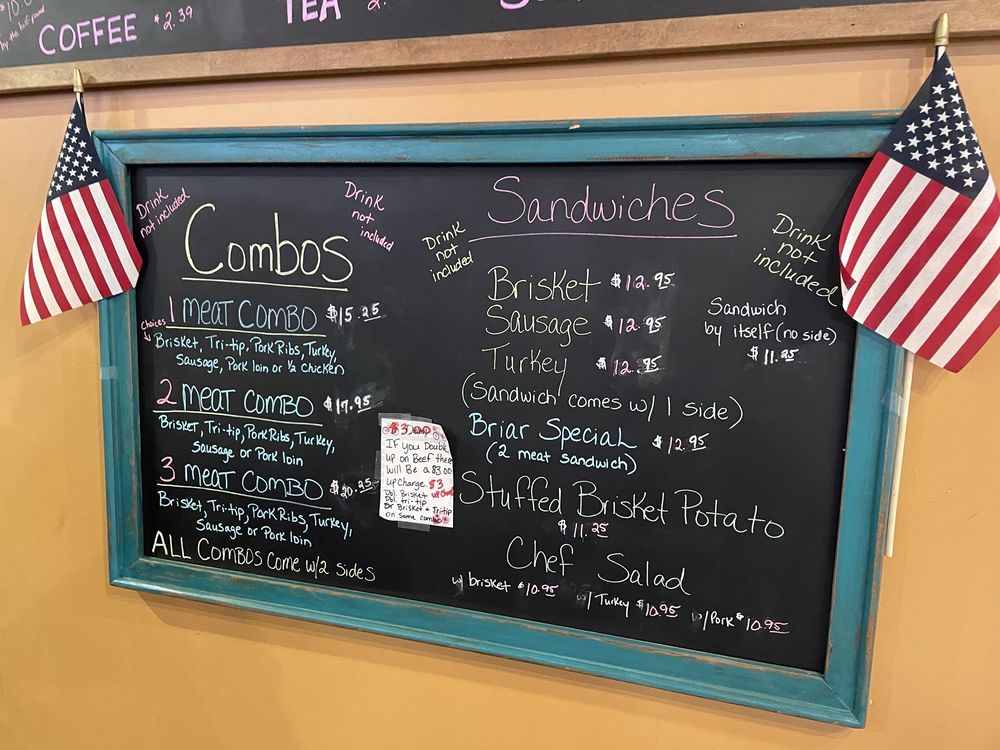 by the half pound
COFFEE $2.39
TEA
Drink
not included
Combos
Drink
not
included
1 MEAT COMBO $15.25
Choices
Brisket, Tri-tip, Pork Ribs, Turkey,
Sausage, Pork loin or ½ Chicken
2 MEAT COMBO
Brisket, Tri-tip, Pork Ribs, Turkey,
Sausage or Pork loin
3 MEAT COMBO
Brisket, Tri-tip, Pork Ribs, Turkey,
Sausage or Pork loin
ALL COMBOS COME W/2 SIDES
IF you Double
up on Beef there
will Be a $3.00
upCharge. $3
Dbl. Brisket
Dbl. tri-tip
or Brisket + Tritip
on same combo
Sandwiches
Drink
not
included
Drink
not
included
Brisket $12.95
Sausage $12.95
Turkey $12.95
(Sandwich comes w/ 1 side)
Sandwich
by itself (no side)
$11.25
Briar Special $12.95
(2 meat sandwich)
Stuffed Brisket Potato
$11.25
Chef Salad
w/ brisket $10.95 w/ Turkey $10.95 w/Pork $10.95